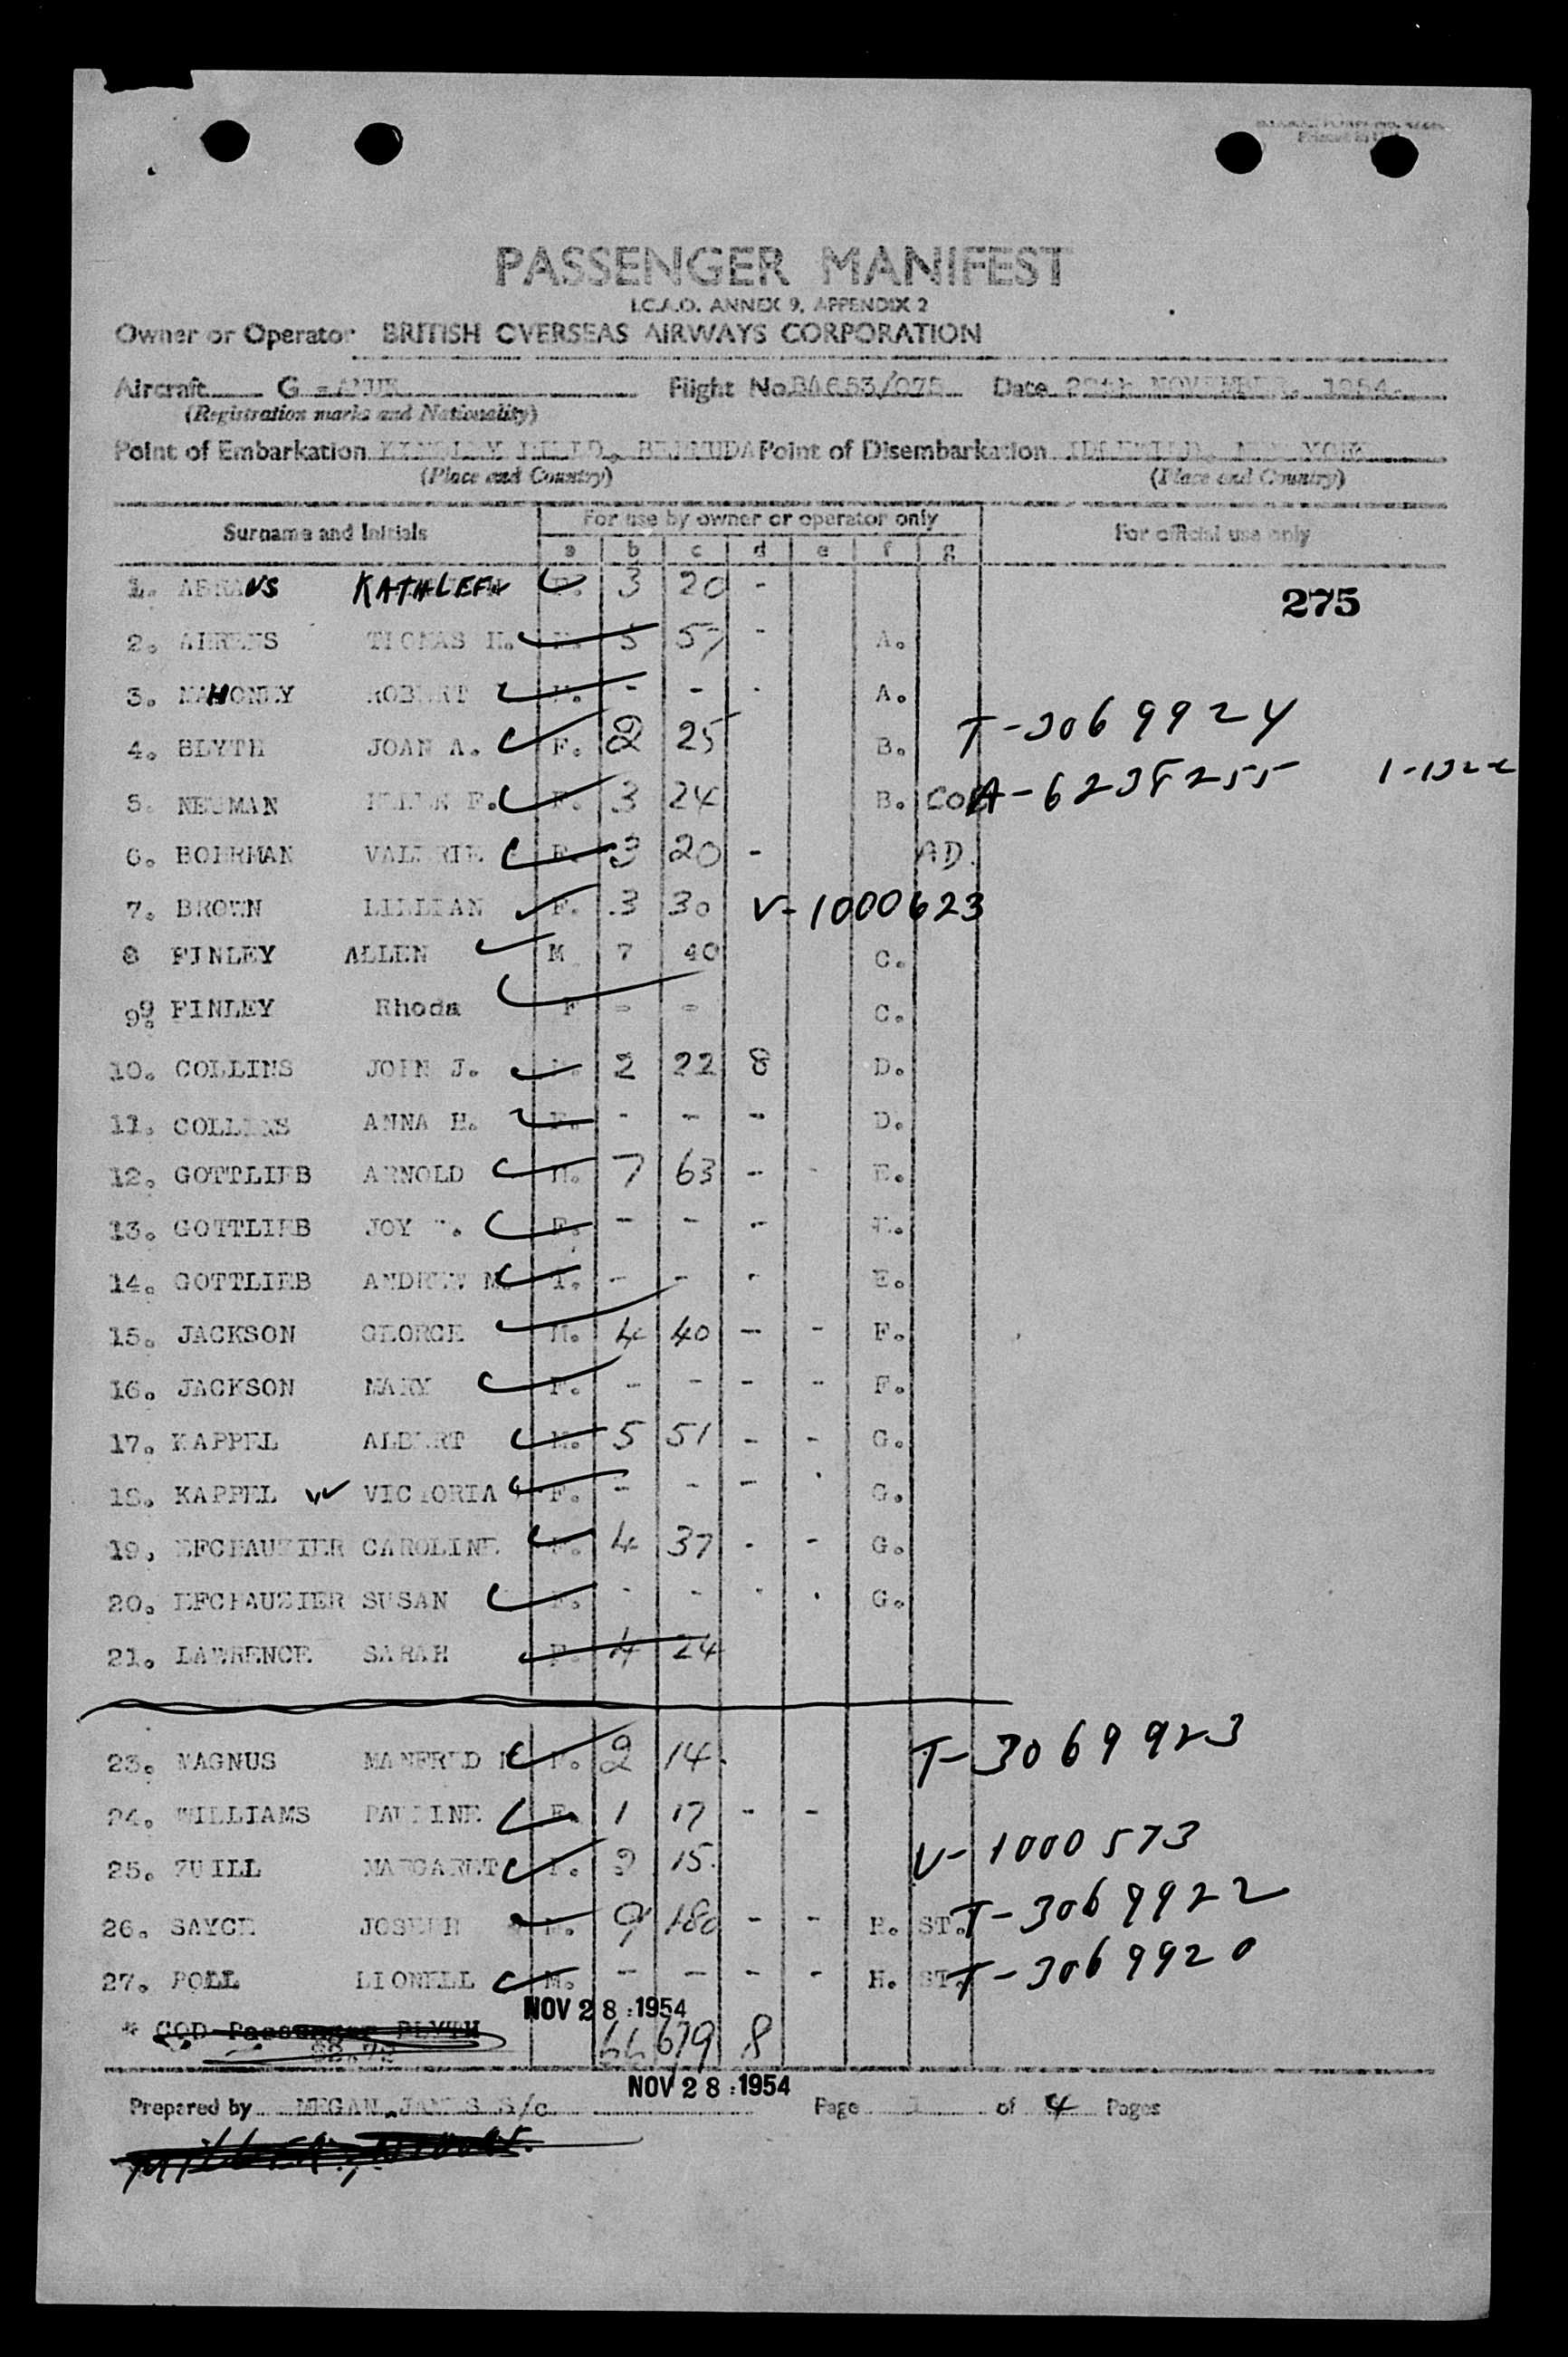 Printed in
PASSENGER MANIFEST
I.C.A.O. ANNEX 9, APPENDIX 2
Owner or Operator BRITISH OVERSEAS AIRWAYS CORPORATION
Aircraft G - Flight No. BA653/075 Date 28th NOVEMBER, 1954.
(Registration marks and Nationality)
Point of Embarkation KINDLEY FIELD, BERMUDA Point of Disembarkation IDLEWILD, NEW YORK
(Place and Country) (Place and Country)
Surname and Initials For use by owner or operator only For official use only
a b c d e f g
1. KATHLEEN F. 3 20 - 275
2. AHRENS THOMAS H. M. 5 57 - A.
3. MAHONEY ROBERT M. - - - A.
4. BLYTH JOAN A. F. 2 25 B. T-3069924
5. NEWMAN HELEN F. F. 3 24 B. CO A-6238255
6. BOERMAN VALERIE F. 3 20 - AD.
7. BROWN LILLIAN F. 3 30 V-1000623
8 FINLEY ALLEN M 7 40 C.
9. FINLEY Rhoda F - - C.
10. COLLINS JOHN J. M. 2 22 8 D.
11. COLLINS ANNA H. F. - - - D.
12. GOTTLIEB ARNOLD M. 7 63 - - E.
13. GOTTLIEB JOY F. - - - E.
14. GOTTLIEB ANDREW M. - - - E.
15. JACKSON GEORGE M. 4 40 - - F.
16. JACKSON MARY F. - - - - F.
17. KAPPEL ALBERT M. 5 51 - - G.
18. KAPPEL VICTORIA F. - - - - G.
19. CAROLINE F. 4 37 - - G.
20. SUSAN F. - - - - G.
21. LAWRENCE SARAH F. 4 24
23. MAGNUS MANFRED 2 14 T-3069923
24. WILLIAMS PAULINE F. 1 17 - -
25. ZUILL MARGARET F. 2 15. V-1000573
26. SAYCE JOSEPH M. 9 180 - - H. ST. T-3069922
27. POLL LIONELL M. - - - - H. ST. T-3069920
NOV 28 1954
* COD Passenger BLYTH
66 679 8
NOV 28 1954
Prepared by MEGAN JAMES S/c Page 1 of 4 Pages